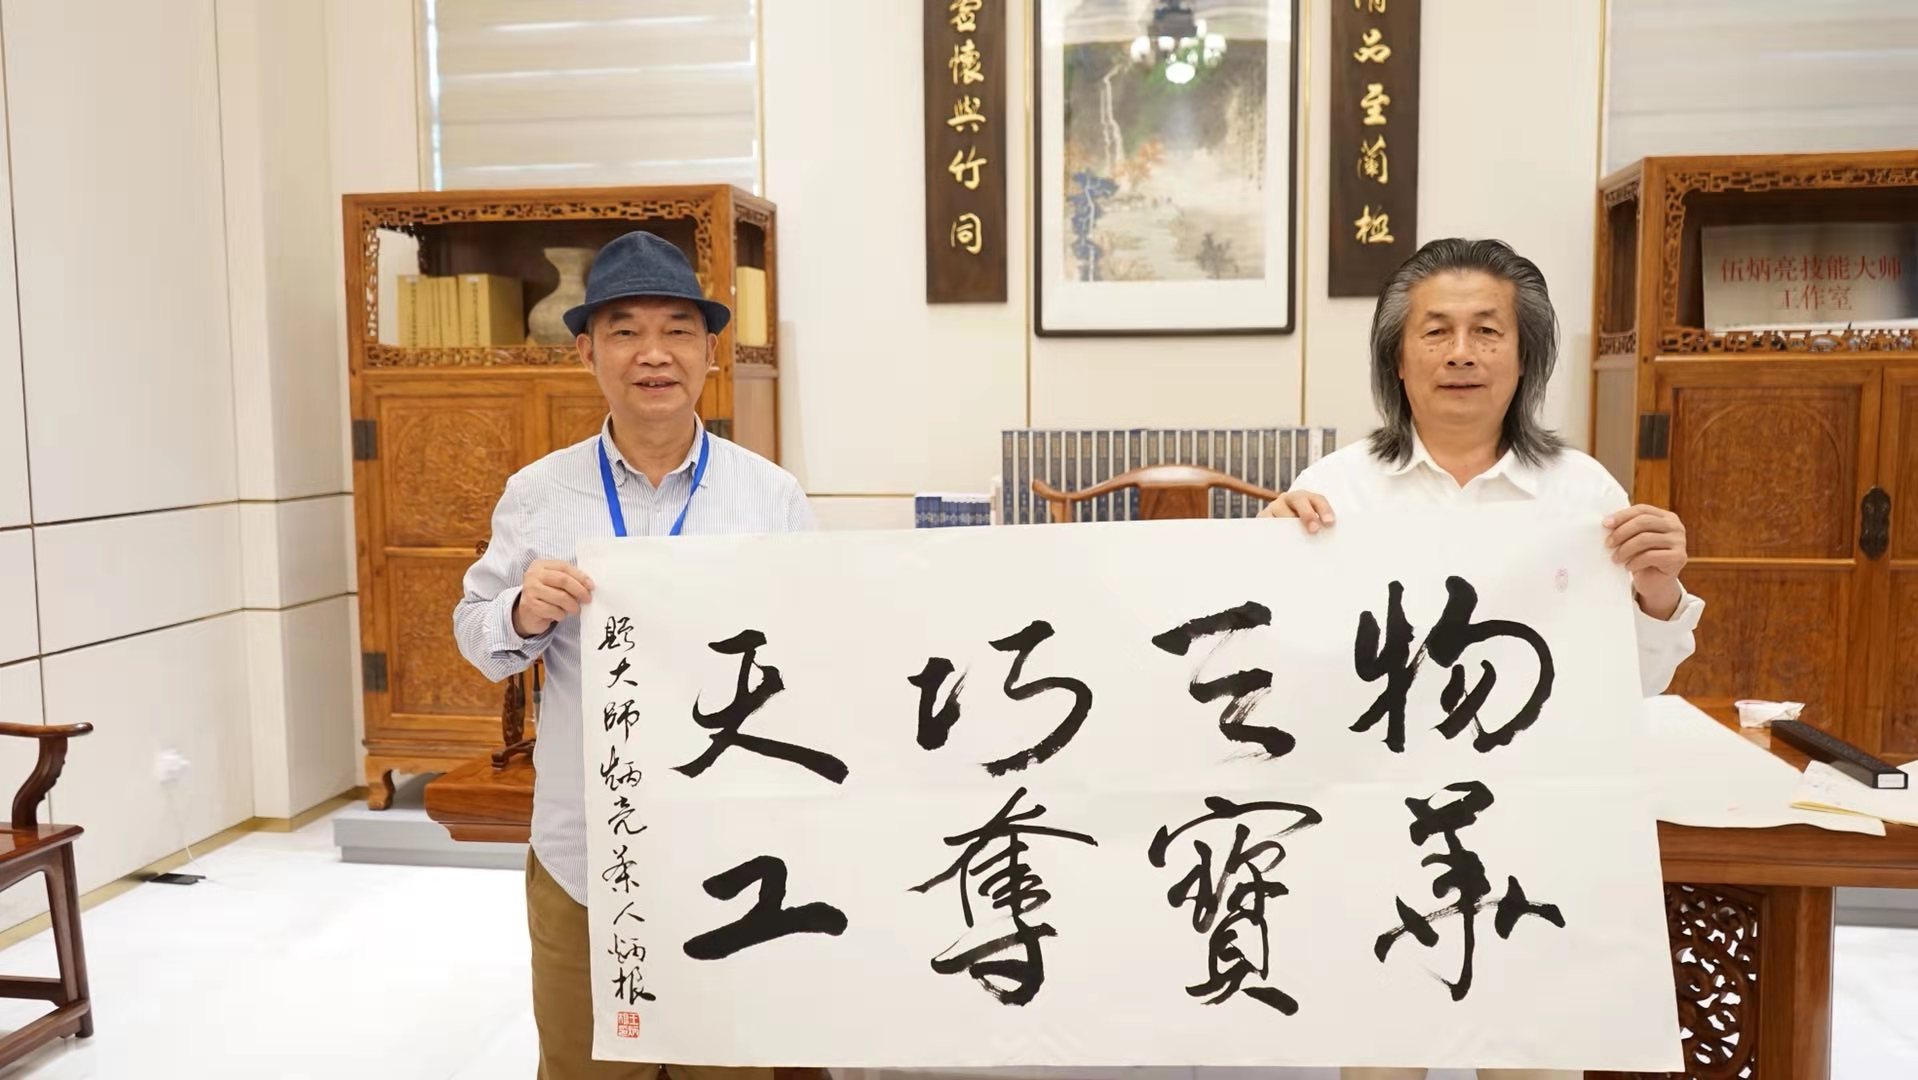 清品至蘭極
虛懷與竹同
伍炳亮技能大师
工作室
物華
天寶
巧奪
天工
題大師炳亮茶人炳根